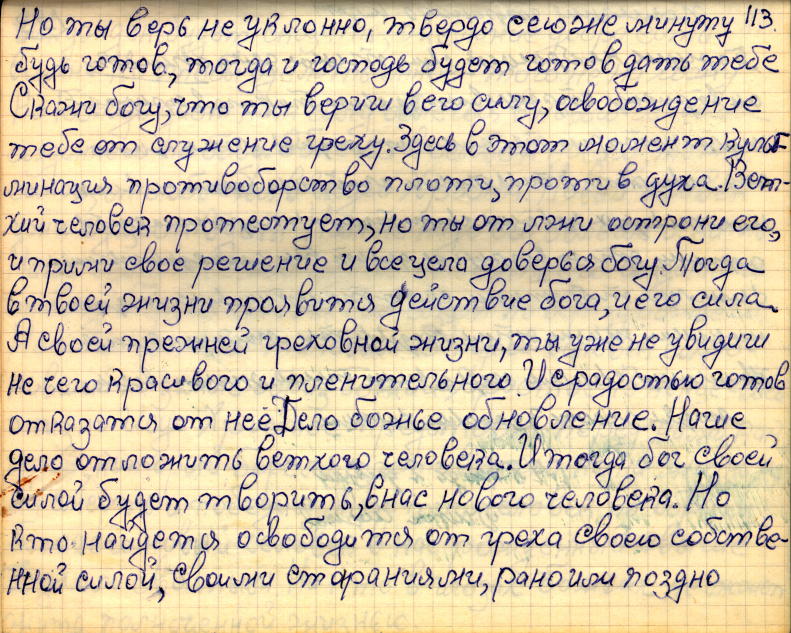 Но ты верь не уклонно, твердо сею же минуту 113.
будь готов, тогда и господь будет готов дать тебе
Скажи богу, что ты вериш в его силу, освобождение
тебе от служение греху. Здесь в этот момент куль-
минация противоборство плоти, против духа. Вет-
хий человек протестует, но ты от лжи острони его,
и прими свое решение и всецела доверься богу. Тогда
в твоей жизни проявится действие бога, и его сила.
А своей прежней греховной жизни, ты уже не увидиш
не чего красивого и пленительного. И с радостью готов
отказатся от неё. Дело божье обновление. Наше
дело отложить ветхого человека. И тогда бог своей
силой будет творить, в нас нового человека. Но
кто найдется освободится от греха своею собстве-
нной силой, своими стараниями, рано или поздно